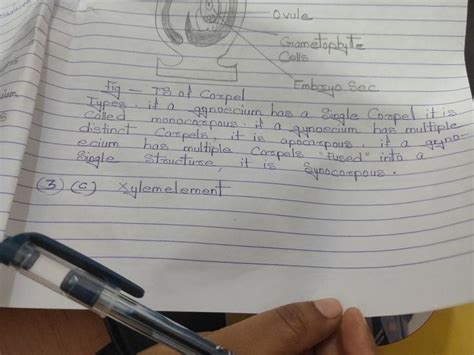 Ovule
Gametophyte
Cells
Embryo Sac
Fig - TS of Carpel
Types. if a gynoecium has a Single Carpel it is
called monocarpous. if a gynoecium has multiple
distinct Carpels, it is apocarpous. if a gyno-
ecium has multiple Carpels "fused" into a
Single Structure, it is Syncarpous.
(3) (C) Xylemelement